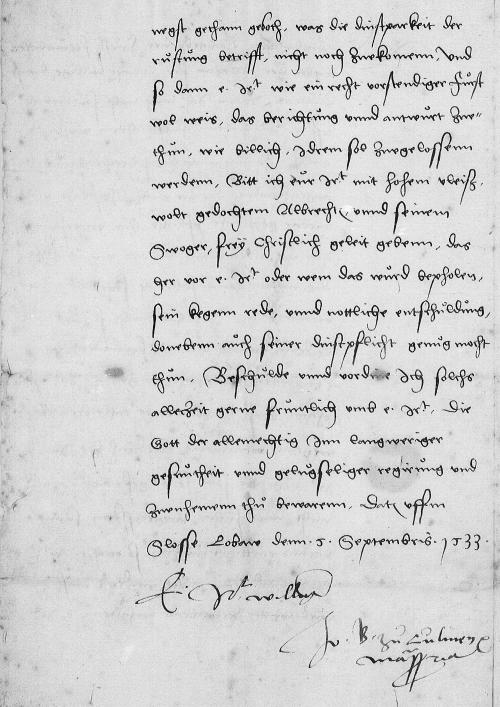 wegst gethann geboth, was die dinstparkeit der
rustung betrifft, nicht noch zwkomenn, Und
so dann e. Irt wie ein recht vorstendiger furst
wol weis, das berichtung vnnd antwurt zw=
thun, wie billich, idrem sol zwgelossenn
werdenn, Bitt ich eur Irt mit hohem vleiß,
wolt gedochtem Albrecht, vnnd seinem
Swoger, frey Christlich geleit gebenn, das
her vor e. Irt oder wem das wurd bepholen,
sein kegenn rede, vnnd nottliche entschuldung,
donebenn auch seiner dinstpflicht genug mocht
thun, Beschulde vnnd vordine Ich solchs
allezeit gerne fruntlich vmb e. Irt, Die
Gott der allemechtig Inn langweriger
gesuntheit vnnd gelugseliger regirung vnd
zwnhemenn thu bewarenn, Dat vffm
Slosse Lobaw denn .5. Septembris. 1533.
E. Irt williger
Jo. B. zu Culmen
manu ppria